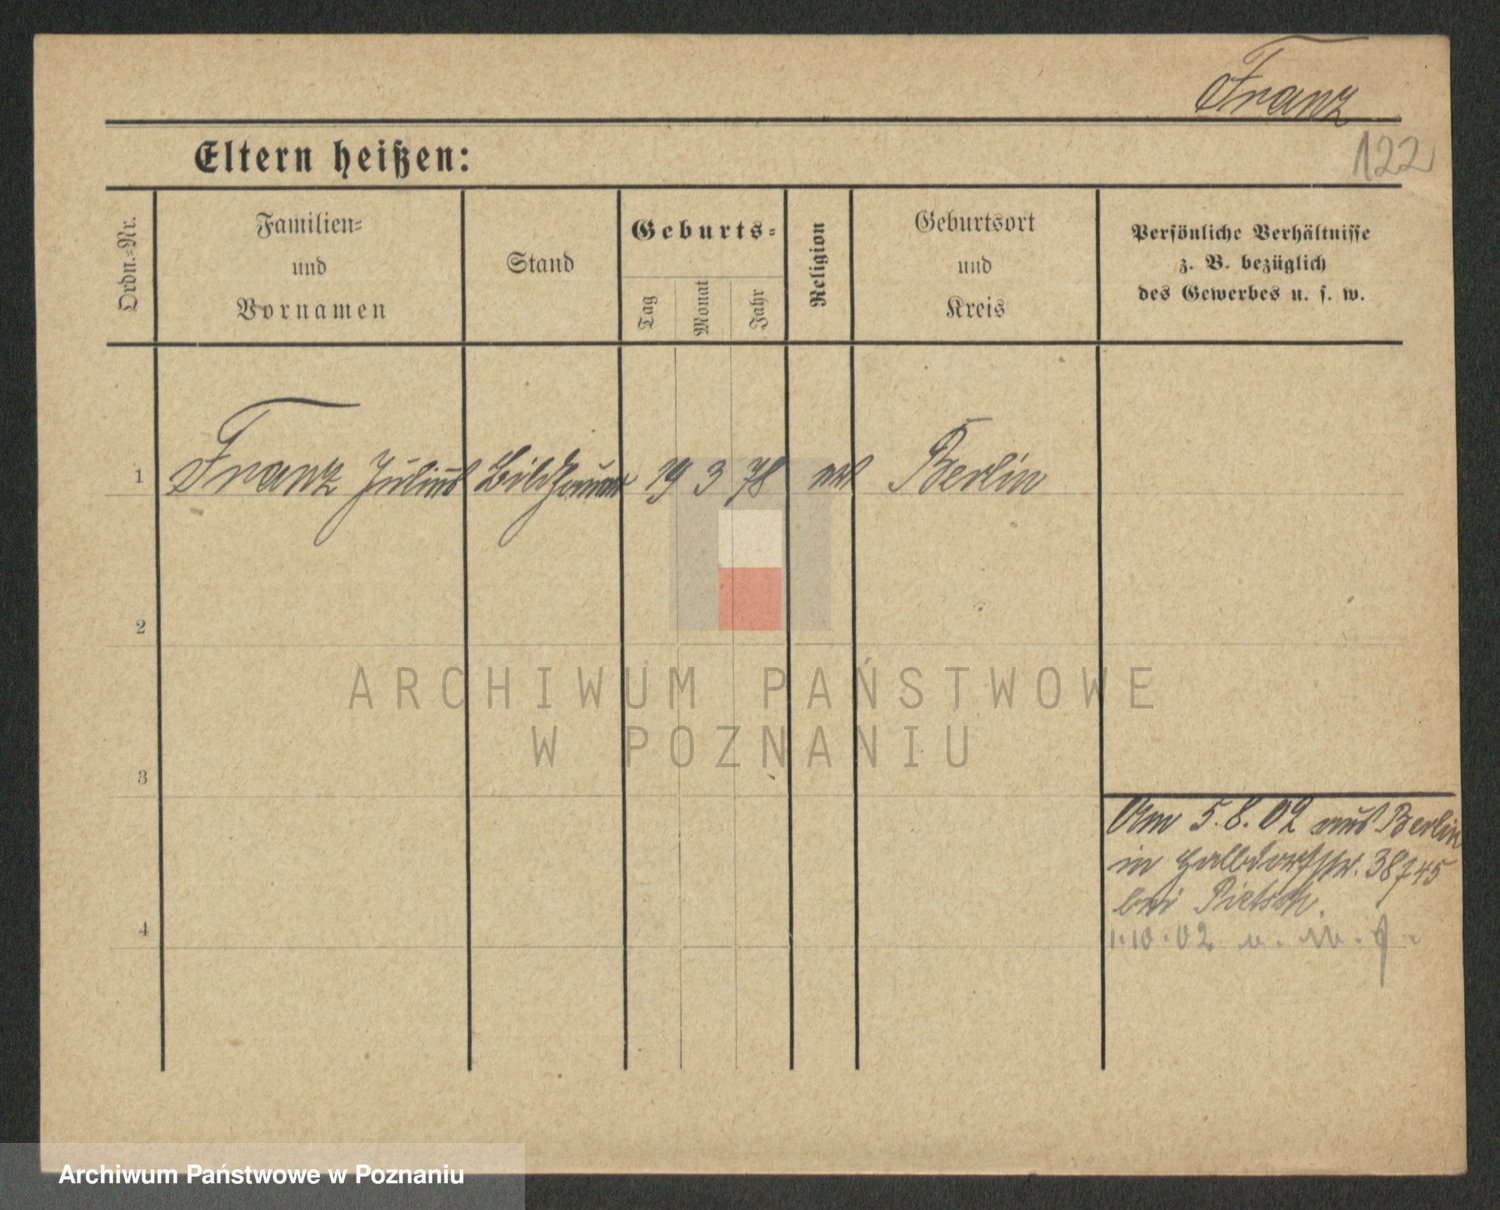 Franz
122
Eltern heißen:
Ordn.-Nr.
Familien-
und
Vornamen
Stand
Geburts-
Tag
Monat
Jahr
Religion
Geburtsort
und
Kreis
Persönliche Verhältnisse
z. B. bezüglich
des Gewerbes u. s. w.
1 Franz Julius Bildhauer 19 3 78 Berlin
2
ARCHIWUM PAŃSTWOWE
W POZNANIU
3
Am 5.8.02 aus Berlin
in Halbdorfstr. 38
bei Pietsch.
4
1.10.02
Archiwum Państwowe w Poznaniu